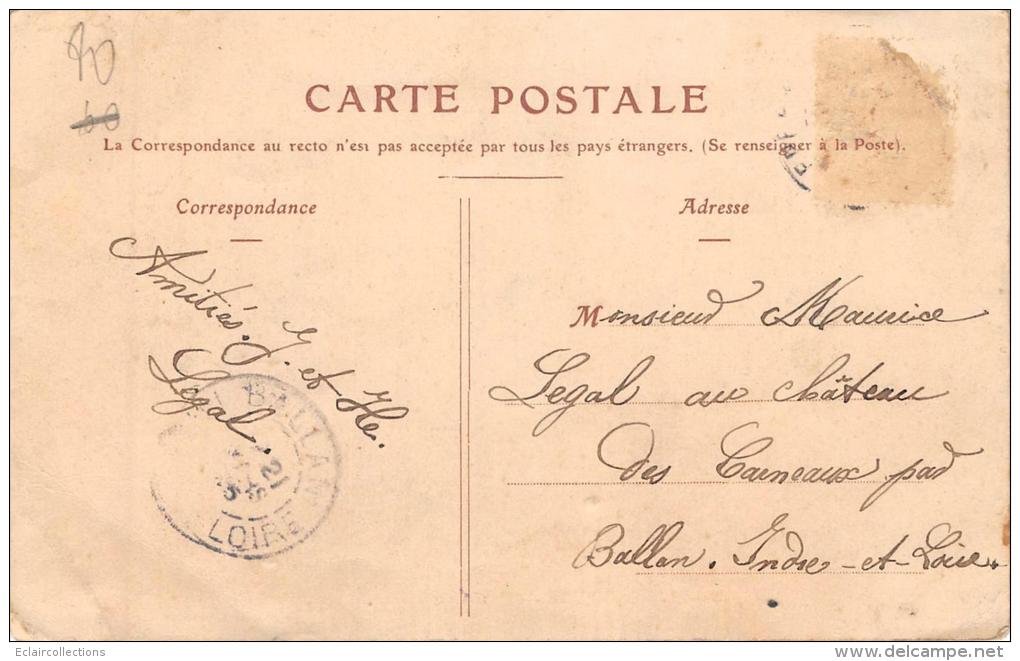 40
60
CARTE POSTALE
La Correspondance au recto n'est pas acceptée par tous les pays étrangers. (Se renseigner à la Poste).
Correspondance
Amitiés.
J. et He.
Legal.
BALLAN
21
LOIRE
Adresse
Monsieur Maurice
Legal au château
des Carneaux par
Ballan. Indre-et-Loire.
Eclaircollections
www.delcampe.net